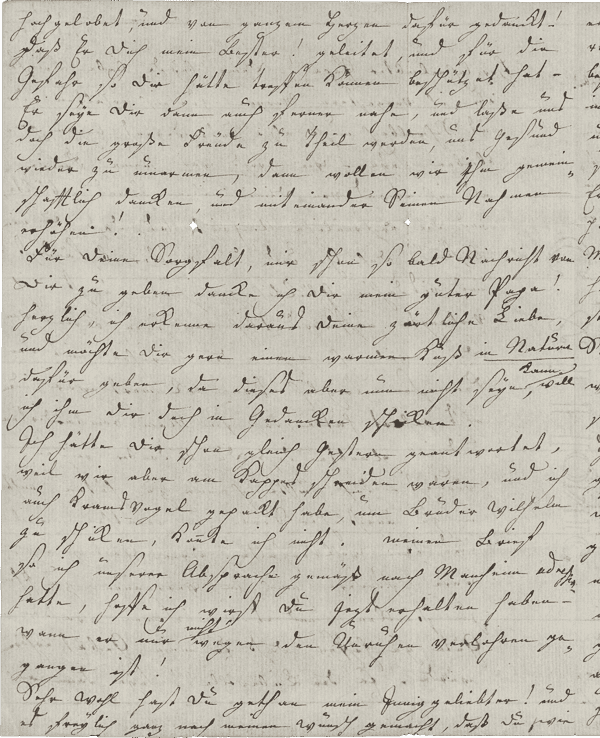 hochgelobet, und von ganzem Herzen dafür gedanckt!
daß Er dich mein Bester! geleitet, und für die
Gefahr so dir hätte treffen können beschützet hat –
Er seye dir dann auch ferner nahe, und laße uns
doch die große Freude zu Theil werden, uns Gesund
wieder zu umarmen, dann wollen wir Ihm gemein-
schafftlich dancken, und miteinander Seinen Nahmen
erhöhen!
Für deine Sorgfalt, mir schon so bald Nachricht von
Dir zu geben dancke ich Dir mein guter Papa!
herzlich, ich erkenne daraus deine zärtliche Liebe,
und möchte dir gern einen warmen Kuß in Natura
dafür geben, da dieses aber nun nicht seyn kann, will
ich ihn dir doch in Gedancken schicken.
Ich hätte dir schon gleich Gestern geantwortet,
weil wir aber am Kappes schneiden waren, und ich
auch Kramsvögel gepackt habe, um Bruder Wilhelm
zu schicken, konte ich nicht. meinen Brief
so ich unserer Absprache gemäß nach Manheim
hatte, hoffe ich wirst Du jezt erhalten haben –
wann er nur nicht wegen den Unruhen verlohren ge-
gangen ist!
Sehr wohl hast du gethan mein Inniggeliebter! und
es freylich ganz nach meinem Wunsch gemacht, daß Du